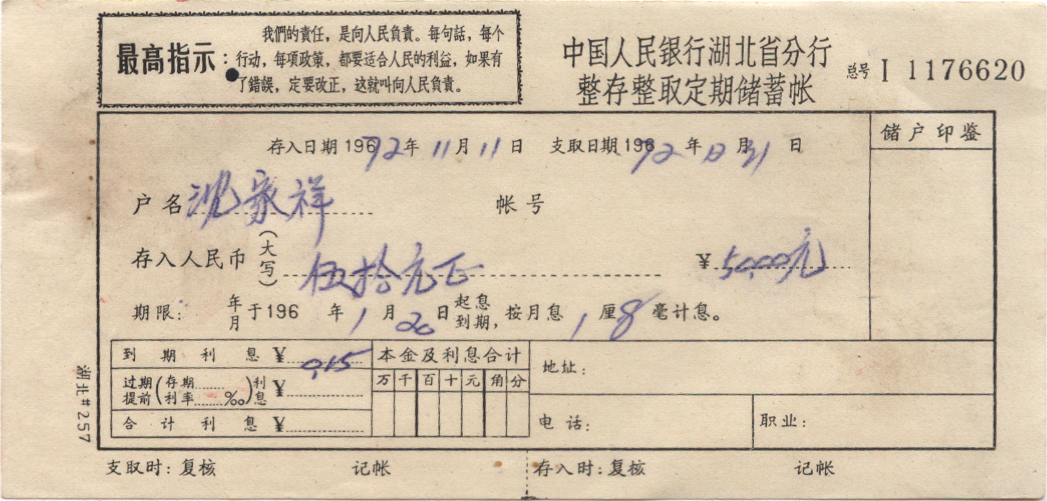 最高指示：
我們的責任，是向人民負責。每句話，每个
行动，每項政策，都要适合人民的利益，如果有
了錯誤，定要改正，这就叫向人民負責。
中国人民银行湖北省分行
整存整取定期储蓄帐
总号 I 1176620
存入日期 196 72年 11月 11日 支取日期 196 72年 12月 31日
储户印鉴
户名 沈家祥 帐号
存入人民币（大写） 伍拾元正 ¥ 50.00元
期限： 年月 于196 年 1月 20日 起息到期，按月息 1厘 8毫计息。
到期利息 ¥ 0.15
本金及利息合计
过期提前（存期利率 ‰）利息 ¥
万 千 百 十 元 角 分
合计利息 ¥
地址：
电话：
职业：
湖北#257
支取时：复核 记帐 存入时：复核 记帐